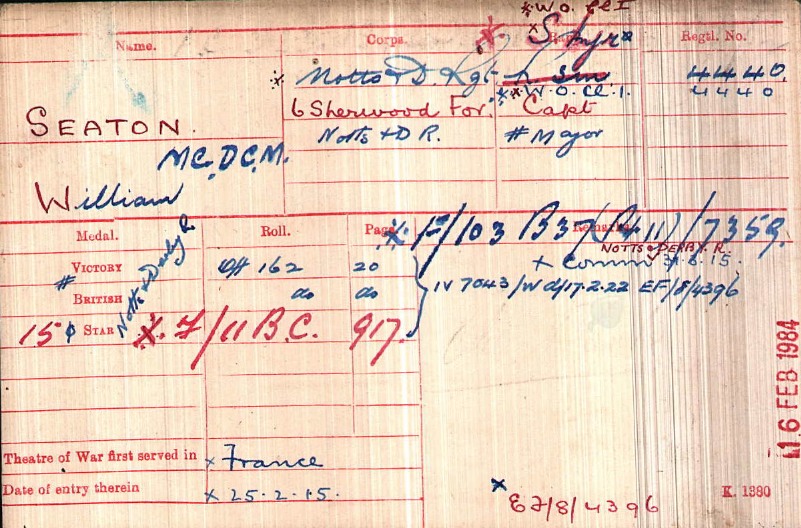 *W.O. Cl I
Name. Corps. Regtl. No.
* Notts & D. Rgt. 4440.
**W.O. Cl. 1. 4440
SEATON. 6 Sherwood For. Capt
MC, DCM. Notts & D R. # Major
William
* F/103 B37 (R411)/7359.
Medal. Roll. Page. Remarks.
NOTTS & DERBY. R.
VICTORY Off 162 20 + Comm 31.8.15.
# Notts & Derby R
BRITISH do do IV 7043/W d/17.2.22 EF/8/4396
15 STAR *. F/11 B.C. 917.
16 FEB 1984
Theatre of War first served in x France
Date of entry therein x 25.2.15.
* EF/8/4396
K. 1380